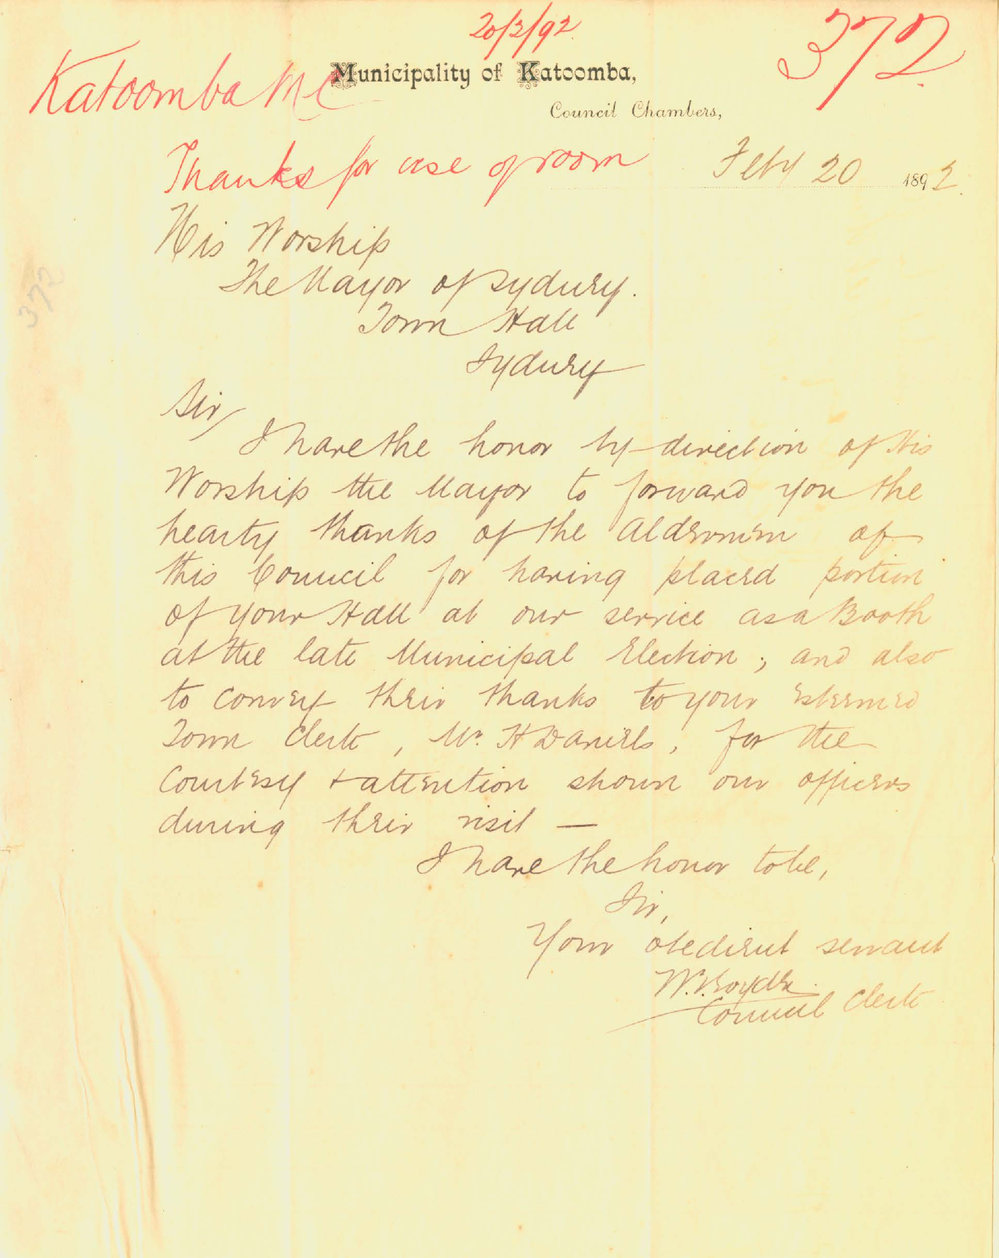 20/2/92
372
Katoomba M C
Municipality of Katoomba,
Council Chambers,
Thanks for use of room
Feby 20 1892.
372
His Worship
The Mayor of Sydney.
Town Hall
Sydney
Sir,
I have the honor by direction of His
Worship the Mayor to forward you the
hearty thanks of the Aldermen of
this Council for having placed portion
of your Hall at our service as a Booth
at the late Municipal Election; and also
to convey their thanks to your esteemed
Town Clerk, Mr. H Daniels, for the
courtesy & attention shown our officers
during their visit —
I have the honor to be,
Sir,
Your obedient servant
Council Clerk